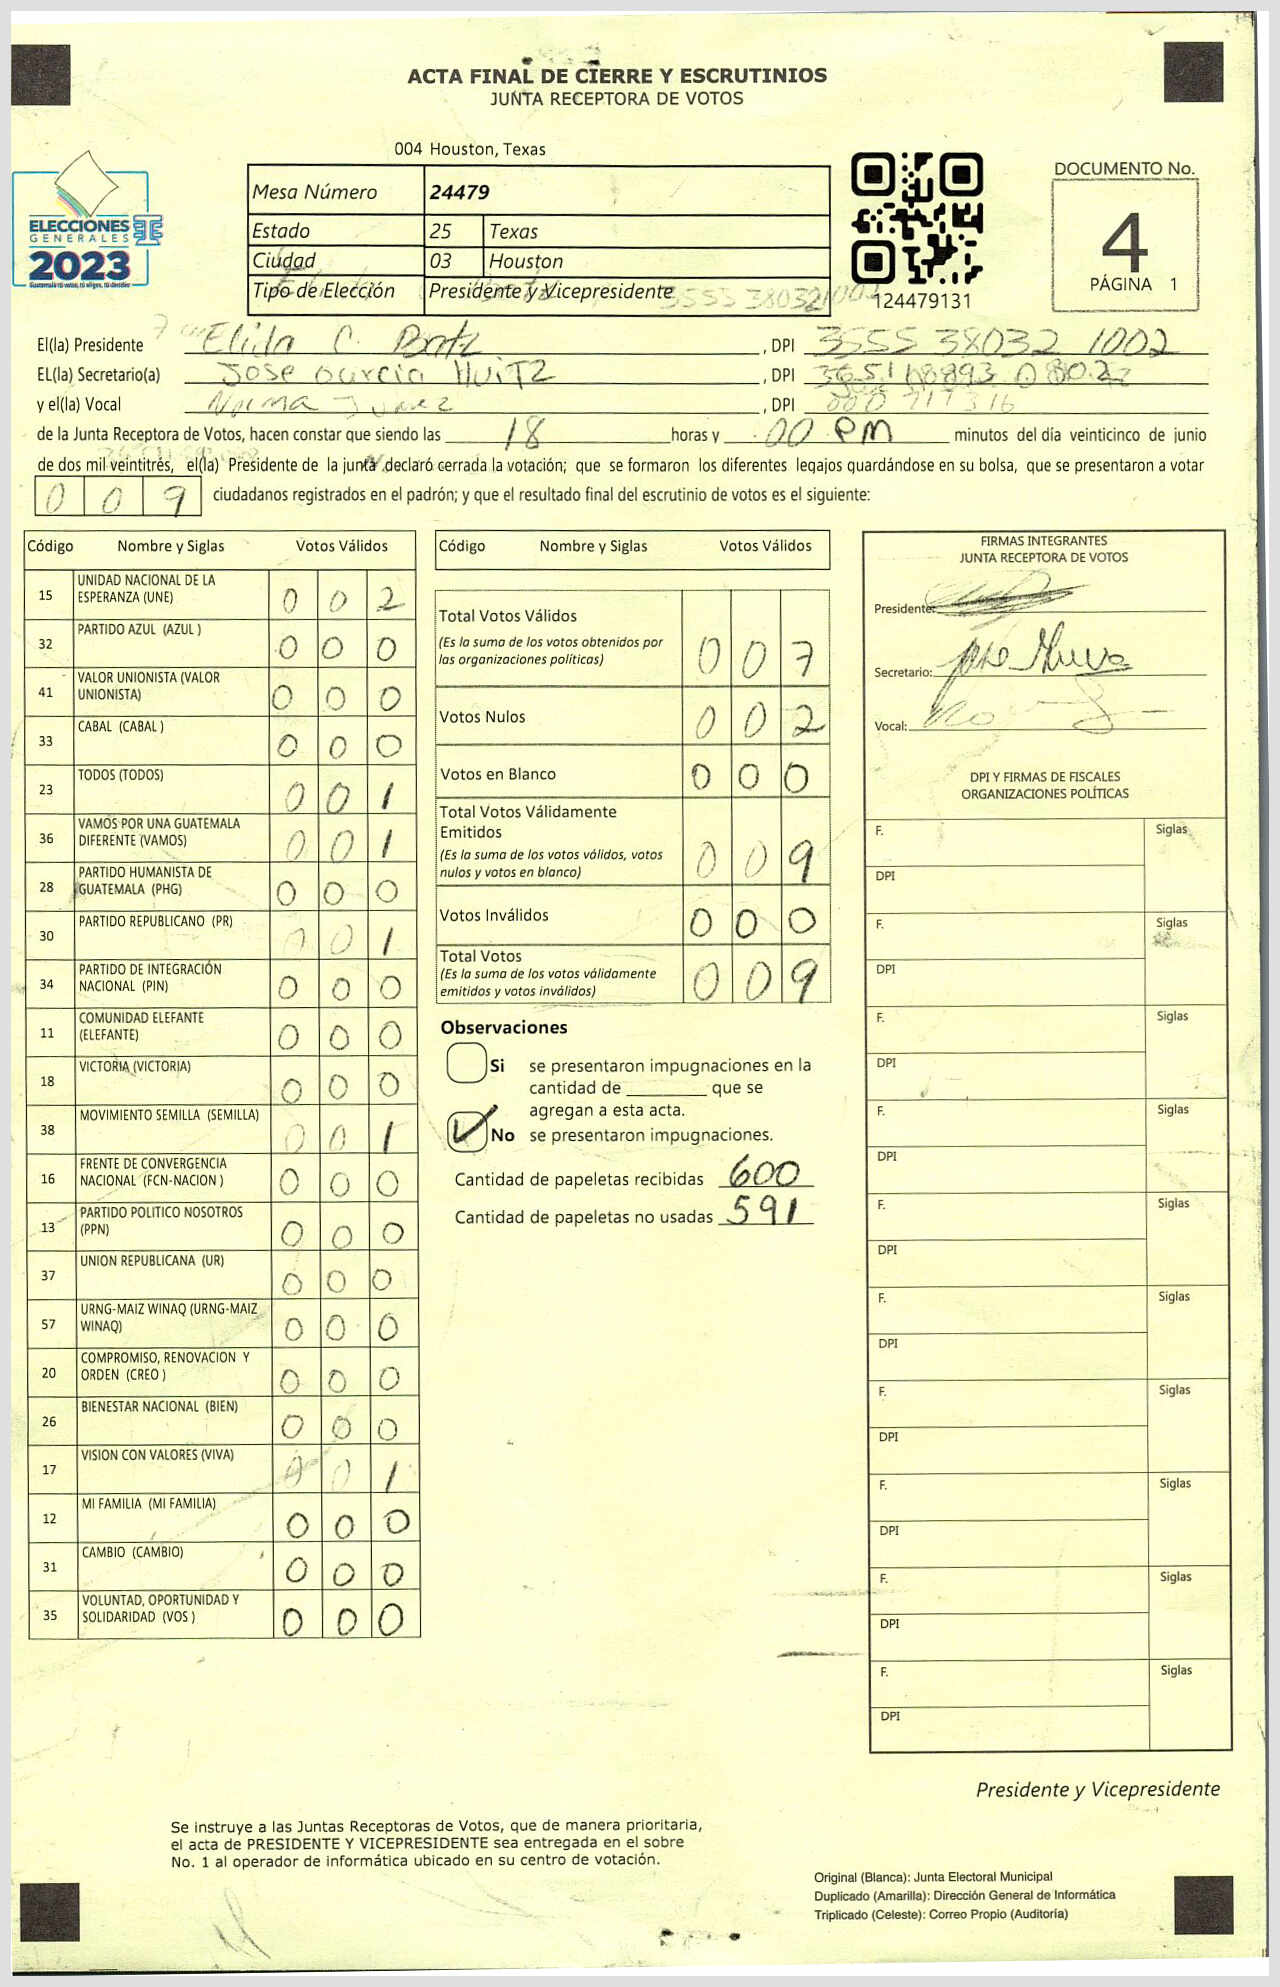 ACTA FINAL DE CIERRE Y ESCRUTINIOS
JUNTA RECEPTORA DE VOTOS
004 Houston, Texas
ELECCIONES
GENERALES
2023
Guatemala tú votas, tú eliges, tú decides
Mesa Número 24479
Estado 25 Texas
Ciudad 03 Houston
Tipo de Elección Presidente y Vicepresidente
124479131
DOCUMENTO No.
4
PÁGINA 1
El(la) Presidente Elida C. Batz , DPI 3555 38032 1002
EL(la) Secretario(a) Jose Garcia Huitz , DPI
y el(la) Vocal Norma , DPI
de la Junta Receptora de Votos, hacen constar que siendo las 18 horas y 00 PM minutos del día veinticinco de junio
de dos mil veintitrés, el(la) Presidente de la junta declaró cerrada la votación; que se formaron los diferentes legajos guardándose en su bolsa, que se presentaron a votar
0 0 9 ciudadanos registrados en el padrón; y que el resultado final del escrutinio de votos es el siguiente:
Código Nombre y Siglas Votos Válidos
15 UNIDAD NACIONAL DE LA ESPERANZA (UNE) 0 0 2
32 PARTIDO AZUL (AZUL ) 0 0 0
41 VALOR UNIONISTA (VALOR UNIONISTA) 0 0 0
33 CABAL (CABAL ) 0 0 0
23 TODOS (TODOS) 0 0 1
36 VAMOS POR UNA GUATEMALA DIFERENTE (VAMOS) 0 0 1
28 PARTIDO HUMANISTA DE GUATEMALA (PHG) 0 0 0
30 PARTIDO REPUBLICANO (PR) 0 0 1
34 PARTIDO DE INTEGRACIÓN NACIONAL (PIN) 0 0 0
11 COMUNIDAD ELEFANTE (ELEFANTE) 0 0 0
18 VICTORIA (VICTORIA) 0 0 0
38 MOVIMIENTO SEMILLA (SEMILLA) 0 0 1
16 FRENTE DE CONVERGENCIA NACIONAL (FCN-NACION ) 0 0 0
13 PARTIDO POLITICO NOSOTROS (PPN) 0 0 0
37 UNION REPUBLICANA (UR) 0 0 0
57 URNG-MAIZ WINAQ (URNG-MAIZ WINAQ) 0 0 0
20 COMPROMISO, RENOVACION Y ORDEN (CREO ) 0 0 0
26 BIENESTAR NACIONAL (BIEN) 0 0 0
17 VISION CON VALORES (VIVA) 0 0 1
12 MI FAMILIA (MI FAMILIA) 0 0 0
31 CAMBIO (CAMBIO) 0 0 0
35 VOLUNTAD, OPORTUNIDAD Y SOLIDARIDAD (VOS ) 0 0 0
Código Nombre y Siglas Votos Válidos
Total Votos Válidos 0 0 7
(Es la suma de los votos obtenidos por
las organizaciones políticas)
Votos Nulos 0 0 2
Votos en Blanco 0 0 0
Total Votos Válidamente
Emitidos 0 0 9
(Es la suma de los votos válidos, votos
nulos y votos en blanco)
Votos Inválidos 0 0 0
Total Votos 0 0 9
(Es la suma de los votos válidamente
emitidos y votos inválidos)
Observaciones
Si se presentaron impugnaciones en la
cantidad de ________ que se
agregan a esta acta.
No se presentaron impugnaciones.
Cantidad de papeletas recibidas 600
Cantidad de papeletas no usadas 591
FIRMAS INTEGRANTES
JUNTA RECEPTORA DE VOTOS
Presidente:
Secretario:
Vocal:
DPI Y FIRMAS DE FISCALES
ORGANIZACIONES POLÍTICAS
F. Siglas
DPI
F. Siglas
DPI
F. Siglas
DPI
F. Siglas
DPI
F. Siglas
DPI
F. Siglas
DPI
F. Siglas
DPI
F. Siglas
DPI
F. Siglas
DPI
F. Siglas
DPI
Presidente y Vicepresidente
Se instruye a las Juntas Receptoras de Votos, que de manera prioritaria,
el acta de PRESIDENTE Y VICEPRESIDENTE sea entregada en el sobre
No. 1 al operador de informática ubicado en su centro de votación.
Original (Blanca): Junta Electoral Municipal
Duplicado (Amarilla): Dirección General de Informática
Triplicado (Celeste): Correo Propio (Auditoría)